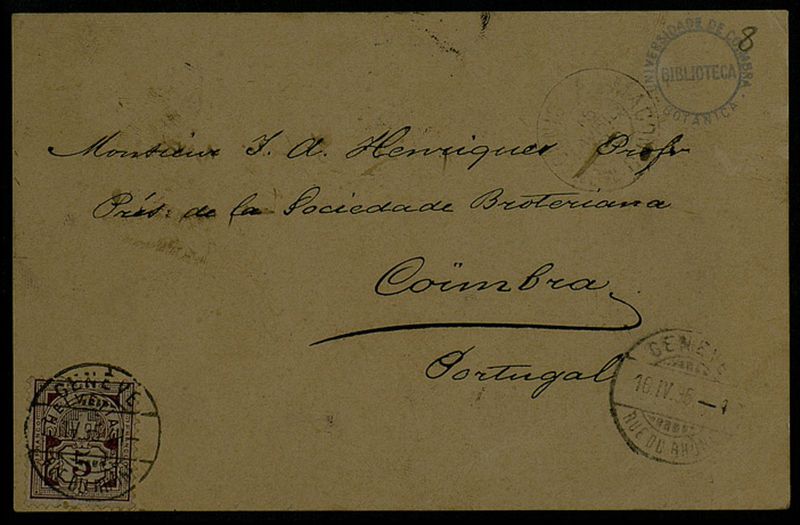 8
UNIVERSIDADE DE COIMBRA
BIBLIOTECA
BOTANICA
Monsieur J. A. Henriques Profr
Prés. de la Sociedade Broteriana
Coïmbra
Portugal
GENÈVE
16.IV.96
RUE DU RHÔNE
GENÈVE
HELVETIA
5
RUE DU RHÔNE